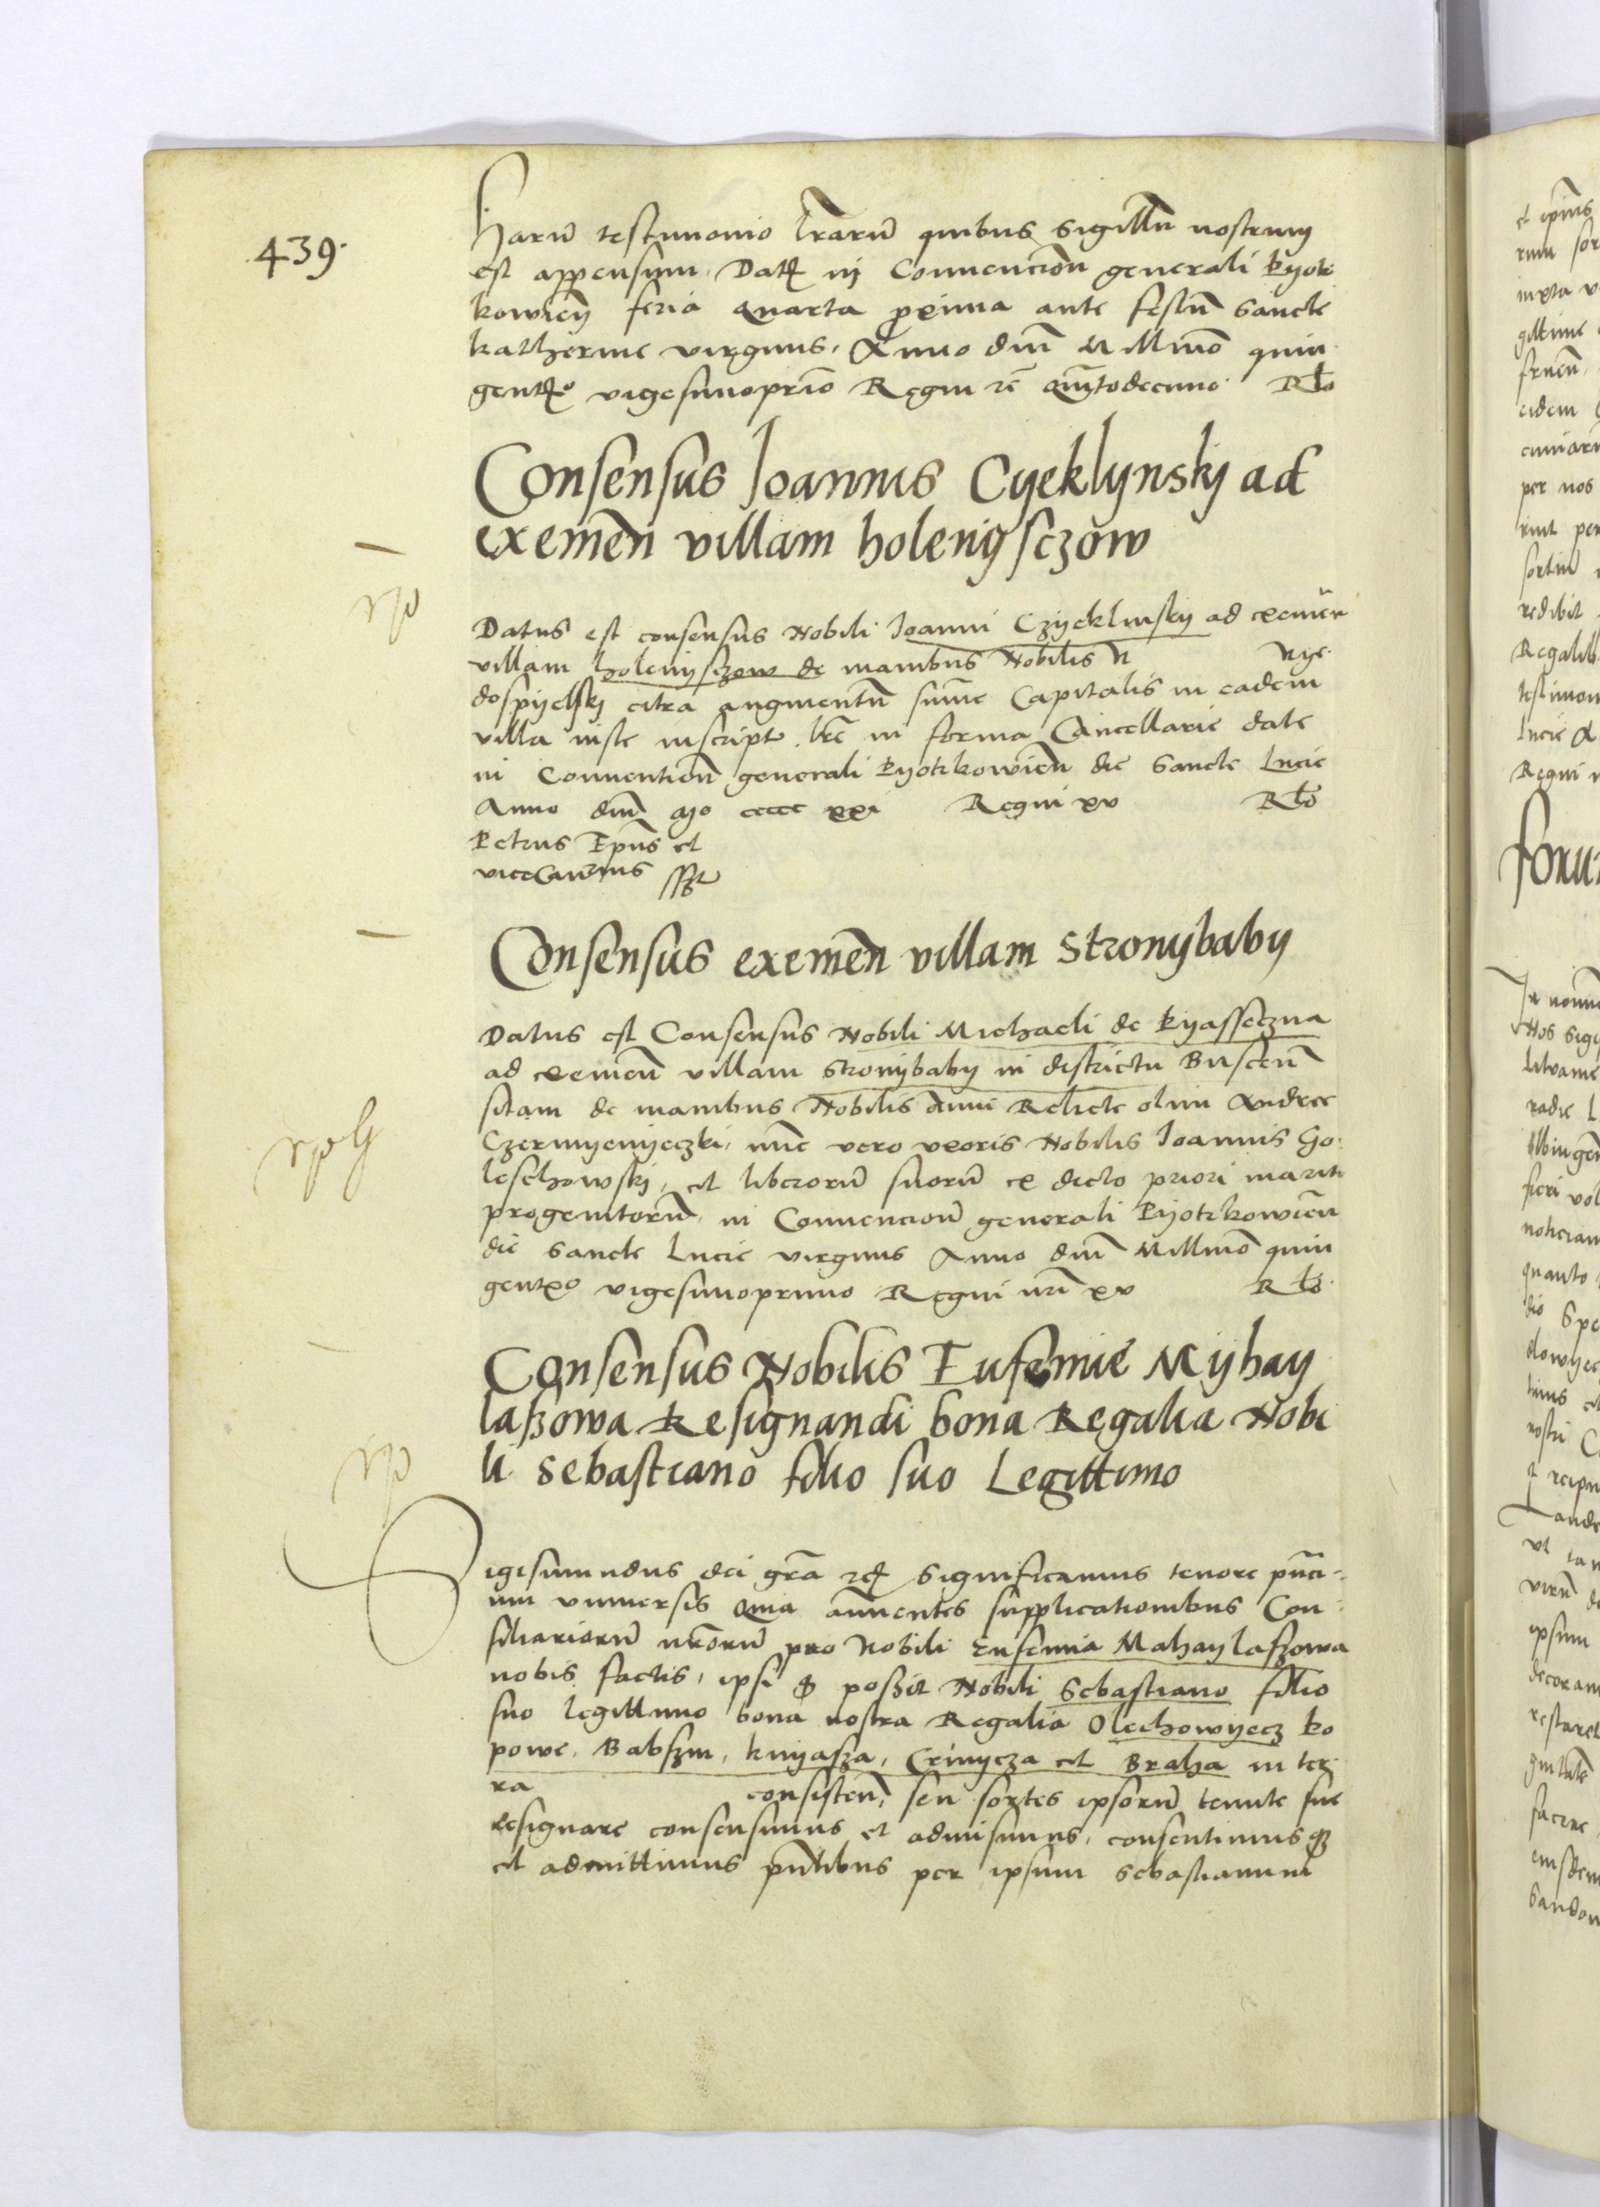 439.
Harũ testimonio lrãrũ quibus sigillũ nostrum
est appensum. Datꝭ in Convencioñ generali Pyotr
kowieñ feria quarta proxima ante festũ Sancte
Katherine virginis. Anno dñi Millimõ quin
gentꝭº vigesimoprīo Regni rē quĩtodecimo. Rlõ
Consensus Joannis Cyeklynskÿ ad
exemeñ villam holenÿsczow
Datus est consensus Nobili Joanni Czyeklinskÿ ad exemeñ
villam holenÿsczow de manibus Nobilis n Nye
dospÿelskÿ citra augmentũ sũme Capitalis in eadem
villa iuste inscript. lrē in forma Cancellarie date
in Conventioñ generali Pyotrkowieñ die Sancte Lucie
Anno dñi Mo ccccc xxi Regni xv Rlõ
Petrus Epũs et
viceCancrius sspt
Consensus exemeñ villam Stronÿbabÿ
Datus est Consensus Nobili Michaeli de Pyasseczna
ad exemeñ villam Stronÿbabÿ in districtu Busceñ
sitam de manibus Nobilis Anni Relicte olim Andree
Czermyenÿeczki, nũc vero uxoris Nobilis Joannis Go
leschowskÿ, et liberorũ suorũ ex dicto priori marito
progenitorũ. in Convencioñ generali Pÿotrkowieñ
die Sancte Lucie virginis Anno dñi Millimõ quin
gentxº vigesimoprimo Regni nrī xv Rlõ.
Consensus Nobilis Eufemie Mÿhaÿ
laßowa Resignandi bona Regalia Nobi
li Sebastiano filio suo Legittimo
Sigismundus dei grã rcꝭ Significamus tenore pñci-
um vniversis Quia annuentes supplicationibus Con-
siliariorũ nrõrũ pro Nobili Eufemia Mahaylaßowa
nobis factis, ipsi ꝙ poßit Nobili Sebastiano filio
suo legittimo bona nostra Regalia Olechowÿecz ko
powe, Babßin, knÿaßa, Crinÿcza et Braha in ter
ra consisteñ, seu sortes ipsorũ tenute sue
resignare consensimus et admisimus, consentimusqꝫ
et admittimus pñtibus per ipsum Sebastianum